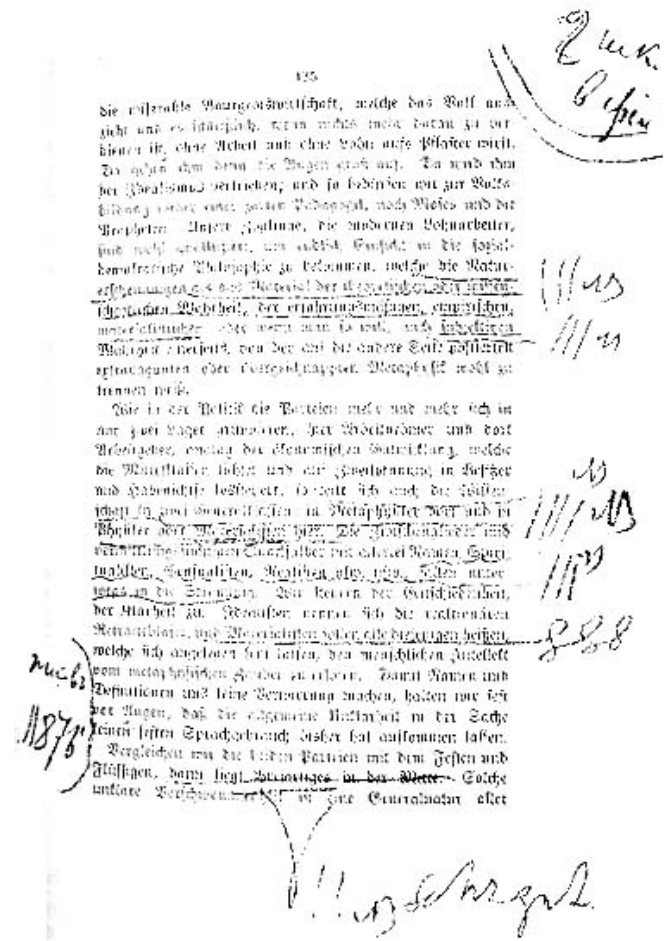 135
die miserable Bourgeoiswirtschaft, welche das Volk aus-
zieht und es schließlich, wenn nichts mehr daran zu ver-
dienen ist, ohne Arbeit und ohne Lohn aufs Pflaster wirft.
Da gehen ihm denn die Augen groß auf. Da wird ihm
der Idealismus vertrieben; und so bedürfen wir zur Volks-
bildung weder einer zarten Pädagogik, noch Moses und die
Propheten. Unsere die modernen Lohnarbeiter,
sind wohl um endlich Einsicht in die sozial-
demokratische Philosophie zu bekommen, welche die Natur-
erscheinungen als das Material der theoretischen oder wissen-
schaftlichen Wahrheit, der erfahrungsmäßigen, empirischen,
materialistischen oder wenn man so will, auch subjektiven
Metaphysik einerseits, von der auf die andere Seite postierten
extravaganten oder übergeschnappten Metaphysik wohl zu
trennen weiß.
Wie in der Politik die Parteien mehr und mehr sich in
nur zwei Lager gruppieren, hier Arbeitnehmer und dort
Arbeitgeber, analog der ökonomischen Entwicklung, welche
die Mittelklassen lichtet und auf Zweiteilung in Besitzer
und Habenichtse lossteuert, so teilt sich auch die Wissen-
schaft in zwei Generalklassen: in Metaphysiker dort und in
Physiker oder Materialisten hier. Die Zwischenglieder und
Quacksalber mit allerlei Namen, Spiri-
tualisten, Sensualisten, Realisten usw. usw. fallen unter-
wegs in die Strömung. Wir steuern der Entschiedenheit,
der Klarheit zu. Idealisten nennen sich die reaktionären
Retraiteblaser, und Materialisten sollen alle diejenigen heißen,
welche sich angelegen sein lassen, den menschlichen Intellekt
vom metaphysischen Zauber zu erlösen. Damit Namen und
Definitionen uns keine Verwirrung machen, halten wir fest
vor Augen, daß die allgemeine Unklarheit in der Sache
keinen festen Sprachgebrauch bisher hat aufkommen lassen.
Vergleichen wir die beiden Parteien mit dem Festen und
Flüssigen, dann liegt Breiartiges in der Mitte. Solche
unklare Verschwommenheit ist eine Generalnatur aller
NB
NB
NB
NB
1876
!! NB sehr gut.